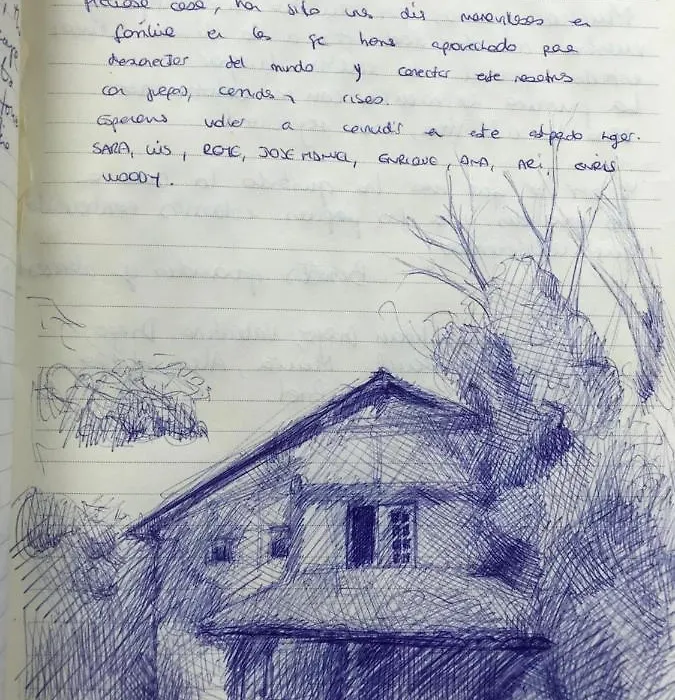 preciosa casa, han sido unos días maravillosos en
familia en los que hemos aprovechado para
desconectar del mundo y conectar entre nosotros
con juegos, comidas y risas.
Esperamos volver a coincidir en este estupendo lugar.
SARA, LUIS, JOSE MANUEL, ENRIQUE, ANA, ARI, CHRIS
WOODY.